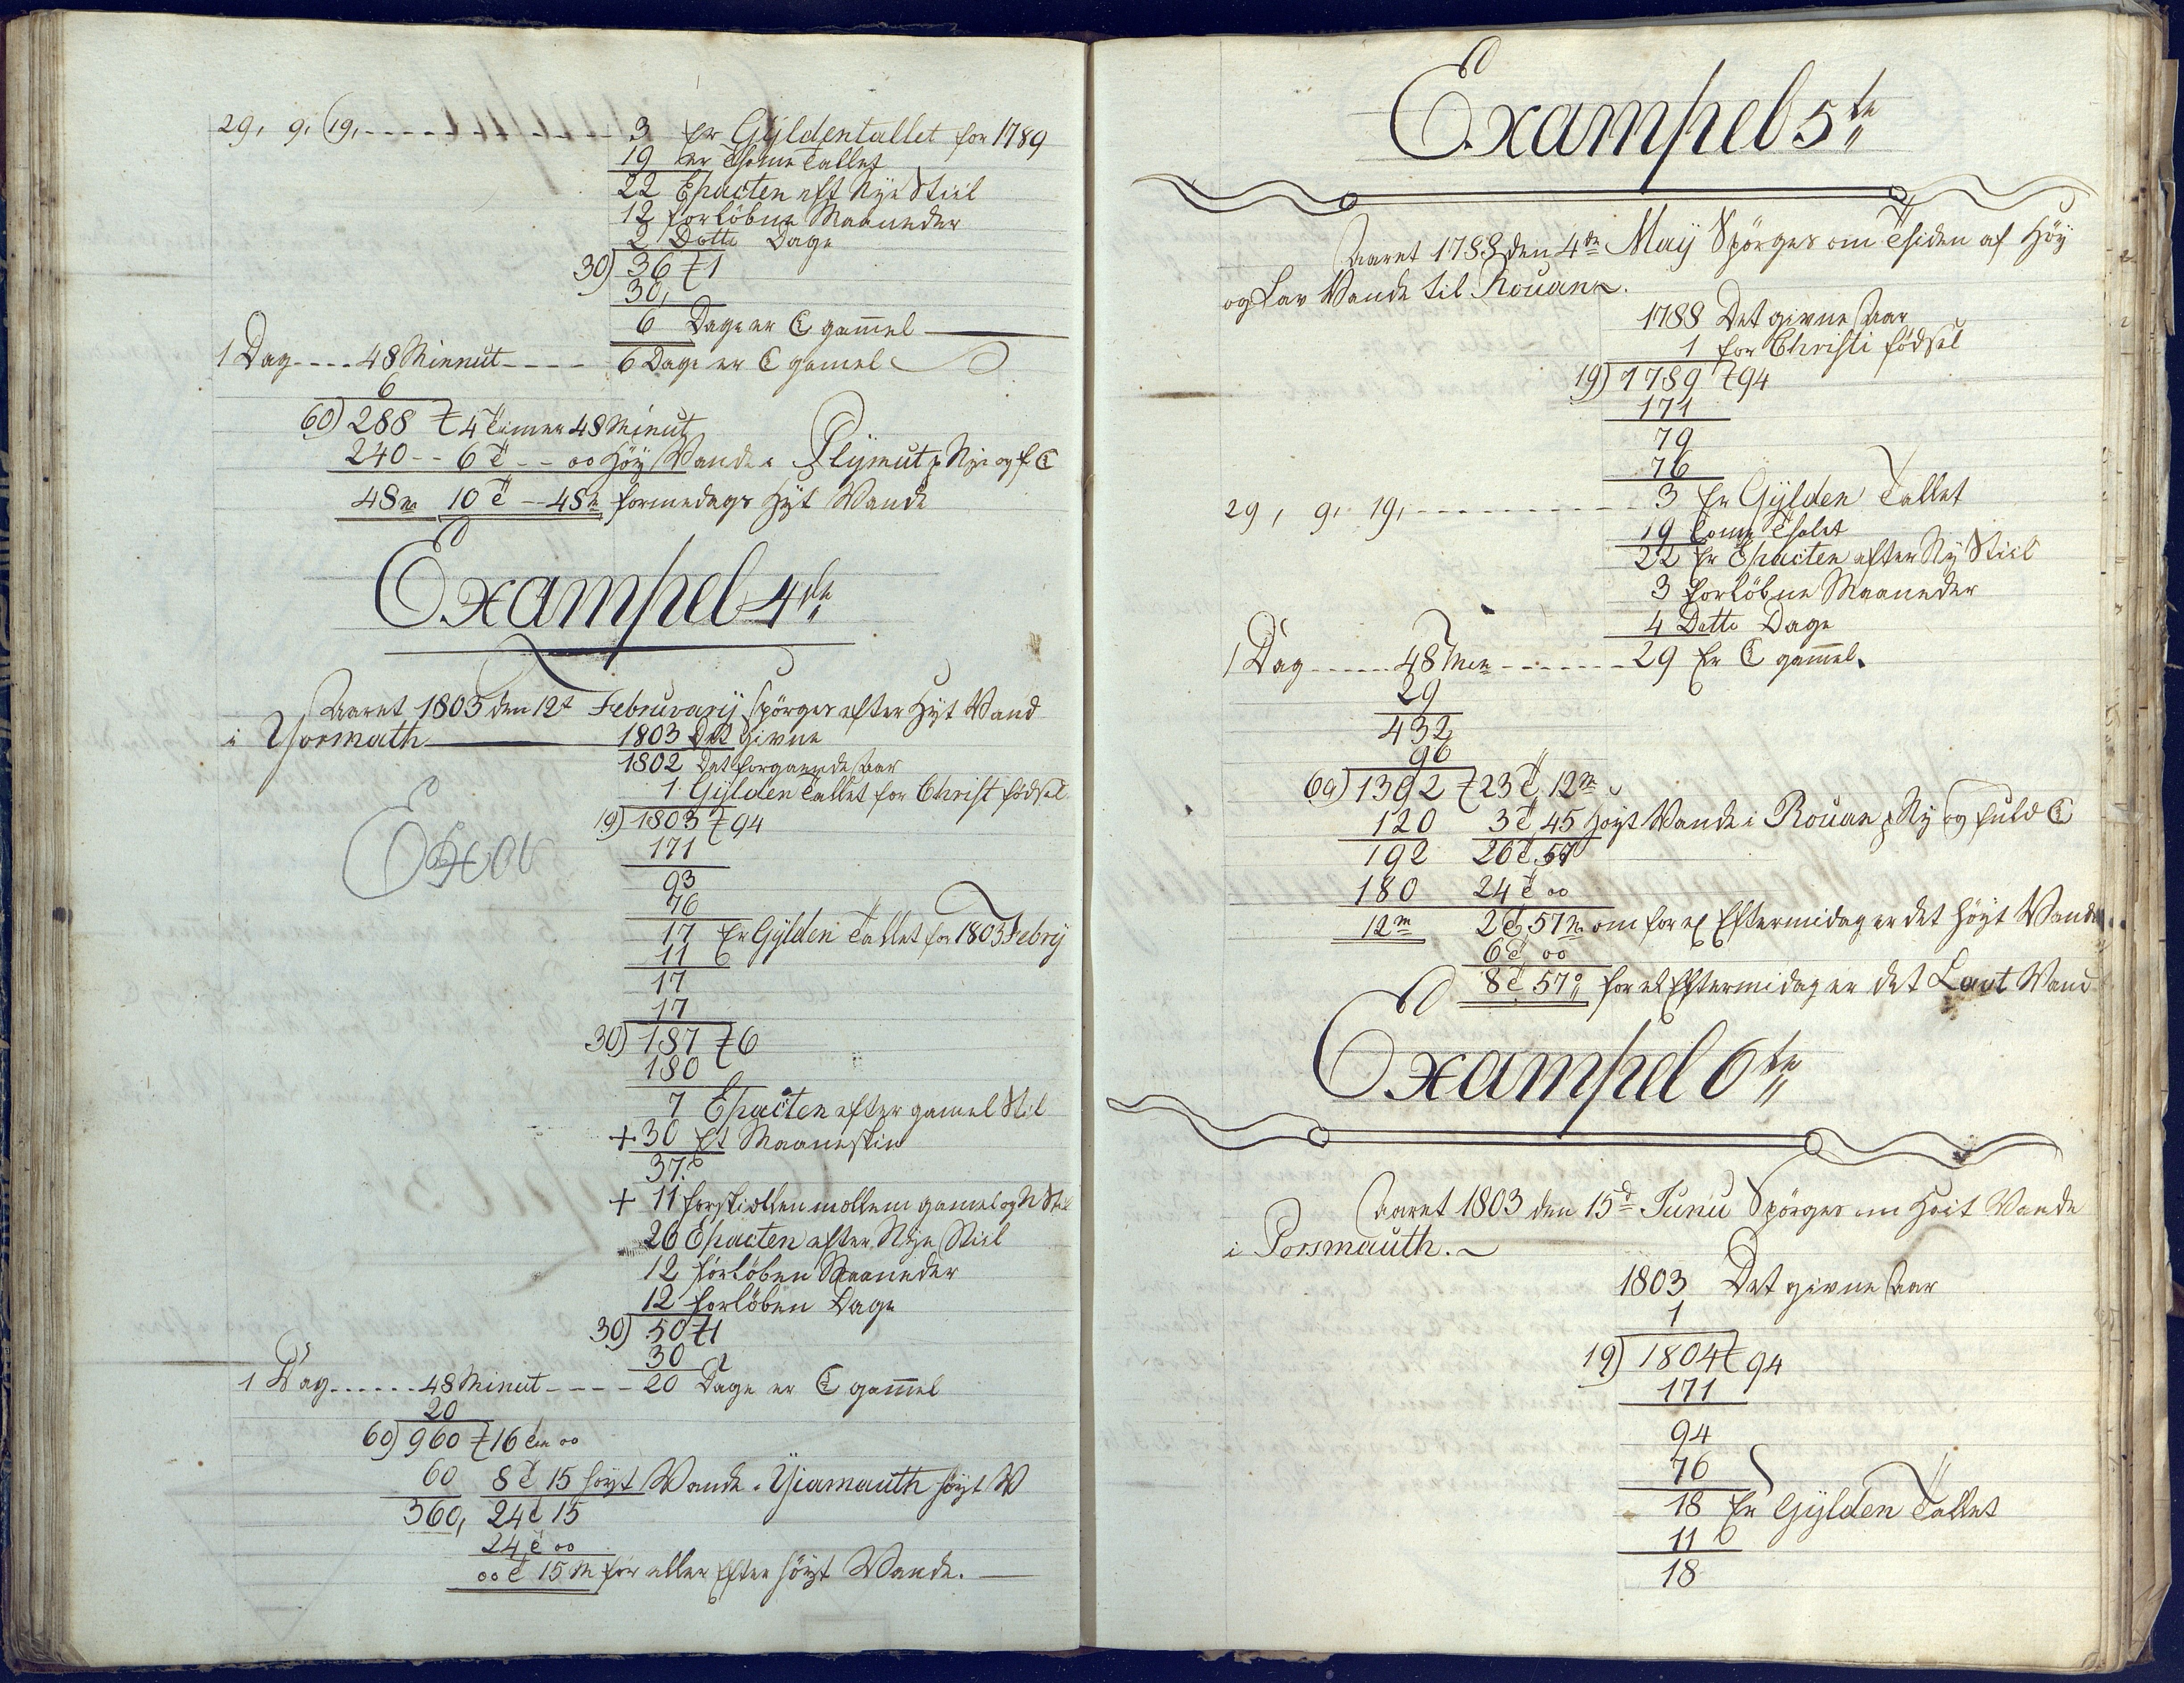 29, 9, 19, - - - - - - - - - - 3 Er Gyldentallet for 1789
19 er Thome Tallet
22 Epacten eft Nye Stiil
12 forløbne Maaneder
2 Dotto Dage
30) 36 1
30,
6 Dage er C gammel
1 Dag - - - - 48 Minnut - - - - 6 Dage er C gamel
6
60) 288 4 Timer 48 Minut
240 - - 6 T - - 00 Høy Vande i Plymut p Nye og f C
48 m 10 T - 48 m formedags Høyt Vande
Exampel 4de
Aaret 1803 den 12t Februvarij Spörges efter Høyt Vand
i Yormath 1803 Det Givne
1802 Det forgaaende Aar
1 Gylden Tallet for Christ födsel
19) 1803 94
171
93
76
17 Er Gylden Tallet for 1803 Febrij
11
17
17
30) 187 6
180
7 Epacten efter gamel Stil
+ 30 Et Maaneskin
37
+ 11 forskiellen mellem gamel og N Stil
26 Epacten efter Nye Stiil
12 forløben Maaneder
12 forløben Dage
30) 50 1
30
1 Dag - - - - - - 48 Minut - - - - 20 Dage er C gammel
20
60) 960 16 Tim 00
60 8 T 15 høyt Vande i Yiarmauth høyt V
360, 24 T 15
24 T 00
00 T 15 M for eller Efter høyt Vande.
Exampel 5te
Aaret 1788 den 4de Maij Spörges om Tiden af Høy
og Lav Vande til Rouan.
1788 Det givne Aar
1 for Christi födsel
19) 1789 94
171
79
76
29, 9, 19, - - - - - - - - - - 3 Er Gylden Tallet
19 Tome Talet
22 Er Epacten efter Ny Stiil
3 forløbne Maaneder
4 Detto Dage
1 Dag - - - - - 48 Min - - - - - - 29 Er C gammel.
29
432
96
60) 1392 23 T 12 m
120 3 T 45 høyt Vande i Rouan p Ny og fuld C
192 26 T 57
180 24 T 00
12 m 2 T 57 m om for el Eftermidag er det høyt Vande
6 T 00
8 T 57 for el Eftermidag er det Laut Vand
Exampel 6te
Aaret 1803 den 15d Junii Spörges om Høit Vande
i Porsmauth.
1803 Det givne Aar
1
19) 1804 94
171
94
76
18 Er Gylden Tallet
11
18